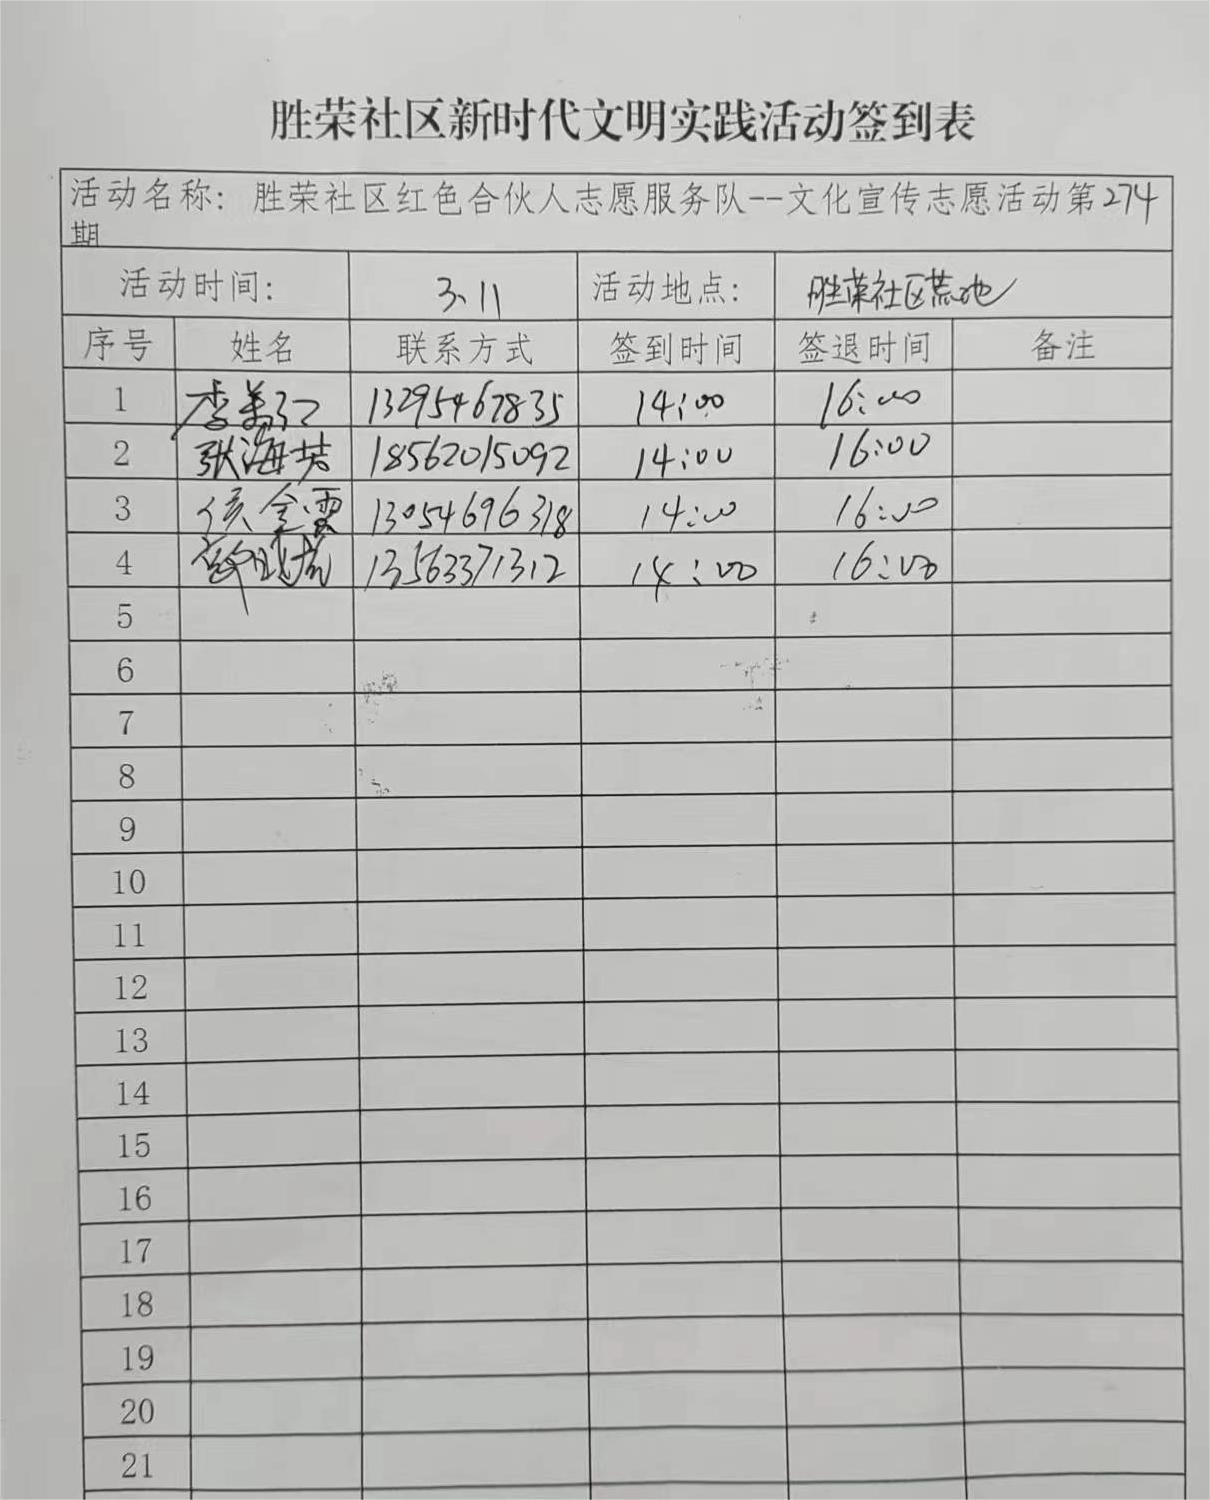 胜荣社区新时代文明实践活动签到表
活动名称：胜荣社区红色合伙人志愿服务队--文化宣传志愿活动第274
期
活动时间： 3.11 活动地点： 胜荣社区荒地
序号 姓名 联系方式 签到时间 签退时间 备注
1 李 13295467835 14:00 16:00
2 张海 18562015092 14:00 16:00
3 侯金雪 13054696318 14:00 16:00
4 13563371312 14:00 16:00
5
6
7
8
9
10
11
12
13
14
15
16
17
18
19
20
21